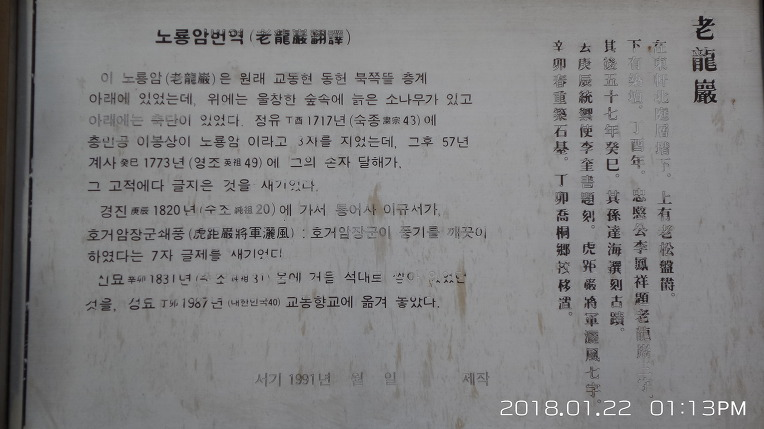 노룡암번역(老龍巖翻譯)
이 노룡암(老龍巖)은 원래 교동현 동헌 북쪽뜰 층계
아래에 있었는데, 위에는 울창한 숲속에 늙은 소나무가 있고
아래에는 이 있었다. 정유 丁酉 1717년(숙종 肅宗 43)에
충민공 이봉상이 노룡암 이라고 3자를 지었는데, 그후 57년
계사 癸巳 1773년(영조 英祖 49)에 그의 손자 달해가,
그 고적에다 글지은 것을 새기었다.
경진 庚辰 1820년(순조 純祖 20)에 가서 통어사 이규서가,
호거암장군쇄풍(虎距巖將軍灑風) : 호거암장군이 풍기를 깨끗이
하였다는 7자 글제를 새기었다
신묘 辛卯 1831년(순조 純祖 31) 봄에 거듭 석대로
것을, 丁卯 1987년(대한민국40) 교동향교에 옮겨 놓았다.
서기 1991년 월 일 세작
老龍巖
在東軒北庭層階下。上有老松盤鬱。
下有 丁酉年。忠愍公李鳳祥題老龍巖三字。
其後五十七年癸巳。其孫達海譔刻古蹟。
去庚辰統禦使李奎書題刻。虎距巖將軍灑風七字。
辛卯春重築石基。丁卯喬桐鄕校移置。
2018.01.22 01:13PM